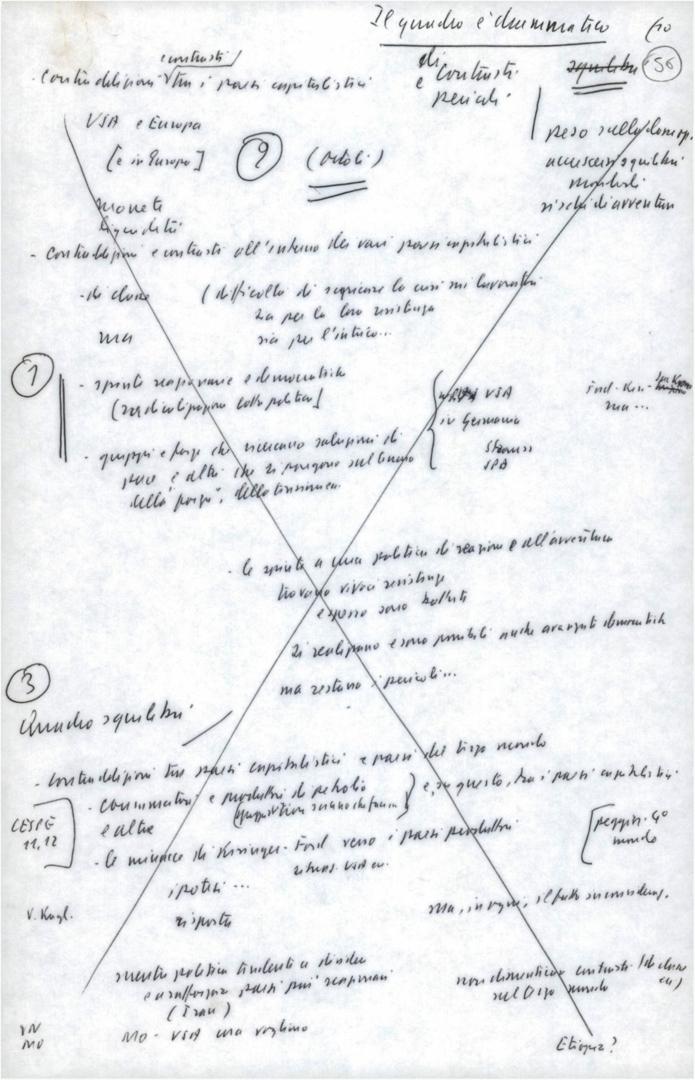 Il quadro è drammatico
di contrasti squilibri 56
e pericoli
contrasti
- contraddizioni tra i paesi capitalistici
USA e Europa
[e in Europa] 2 (Ortoli)
peso sulla
accrescere squilibri
mondiali
rischi di avventure
monete
liquidità
- contraddizioni e contrasti all'interno dei vari paesi capitalistici
- di classe (difficoltà di scaricare la crisi sui lavoratori
sia per la loro resistenza
ma sia per l'intrico...
1
- spinte reazionarie e democratiche
[radicalizzazione lotta politica]
USA
in Germania
Strauss
SPD
Ford - Kiss -
ma ...
- gruppi e forze che ricercano soluzioni di
pace e altri che si pongono sul terreno
della "forza", della tensione.
- le spinte a una politica di reazione e all'avventura
trovano vivaci resistenze
e spesso sono battute
Si realizzano e sono possibili anche avanzate democratiche
ma restano i pericoli...
3
Quadro squilibri
- contraddizioni tra paesi capitalistici e paesi del terzo mondo
- consumatori e produttori di petrolio e, su questo, tra i paesi capitalistici
e altre
CESPE
11, 12
- le minacce di Kissinger - Ford verso i paesi produttori
[peggior. 4°
mondo
ipotesi ...
V. Kugl. risposte
ma, in ogni, il fatto
mentre politica tendente a dividere
e a rafforzare paesi più reazionari
(Iran)
non dimenticare contrasti
nel terzo mondo
VN
MO
MO - USA
Etiopia?